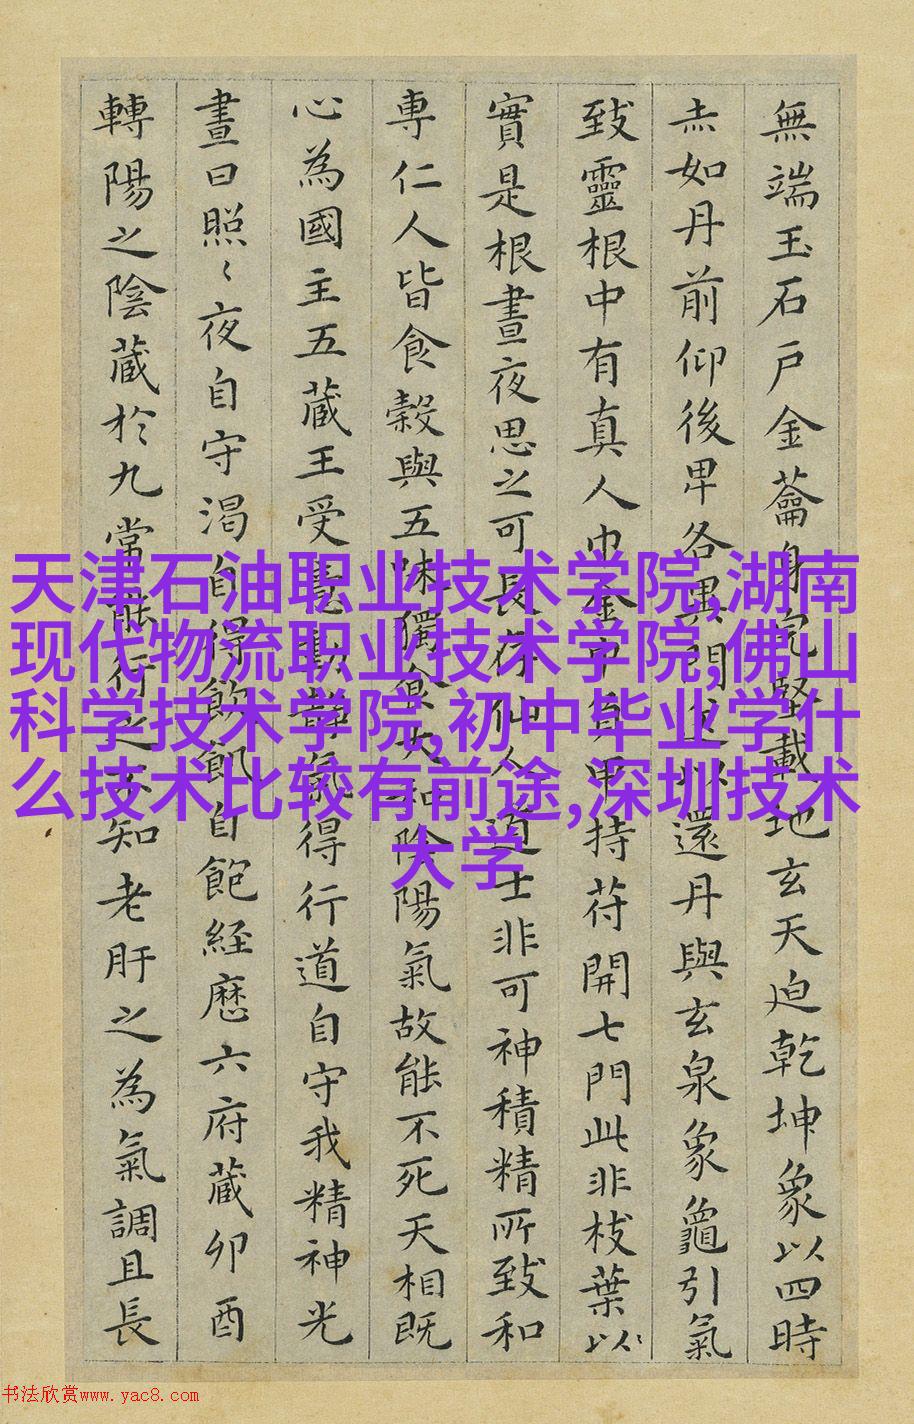 無端玉石戶金蘥身完堅載地玄天迫乾坤象以四時
赤如丹前仰後卑各異門送以還丹與玄泉象龜引氣
致靈根中有真人巾金巾負甲持苻開七門此非枝葉以〻
實是根晝夜思之可長存仙人道士非可神積精所致和
專仁人皆食穀與五味獨食太和陰陽氣故能不死天相既
心為國主五藏王受意動靜氣得行道自守我精神光
晝日照〻夜自守渴自得飲飢自飽経曆六府藏卯酉
轉陽之陰藏於九常能行之不知老肝之為氣調且長
天津石油职业技术学院,湖南
现代物流职业技术学院,佛山
科学技术学院,初中毕业学什
么技术比较有前途,深圳技术
大学
书法欣赏www.yac8.com